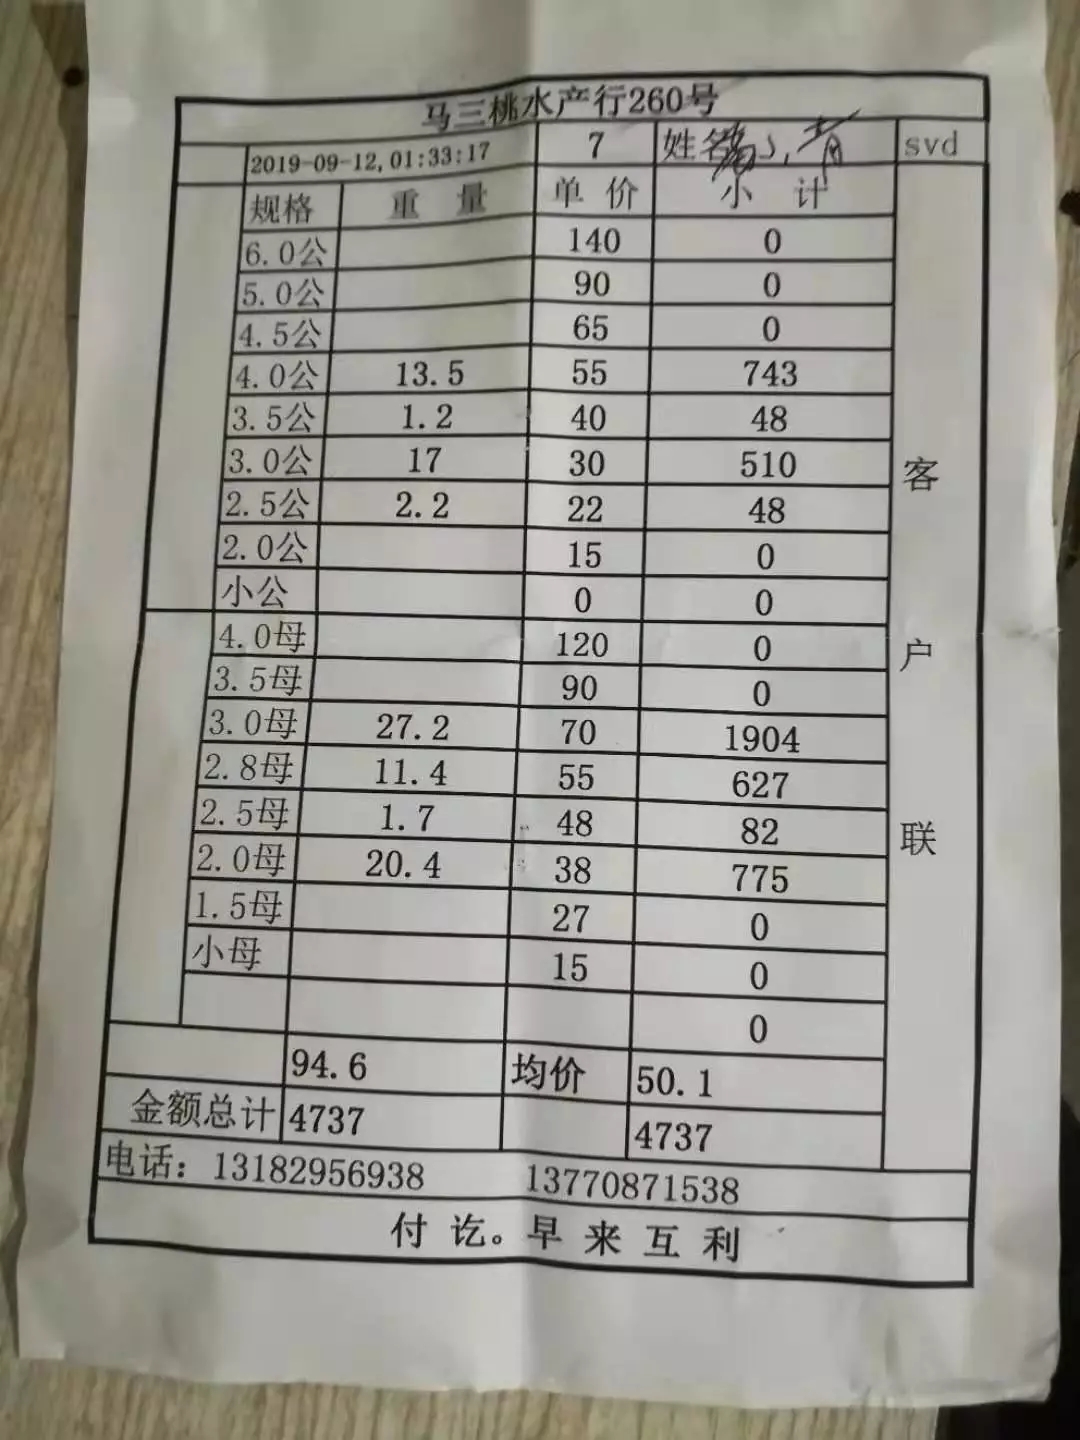 马三桃水产行260号
2019-09-12,01:33:17 7 姓名 svd
规格 重量 单价 小计
6.0公 140 0
5.0公 90 0
4.5公 65 0
4.0公 13.5 55 743
3.5公 1.2 40 48
3.0公 17 30 510
2.5公 2.2 22 48
2.0公 15 0
小公 0 0
4.0母 120 0
3.5母 90 0
3.0母 27.2 70 1904
2.8母 11.4 55 627
2.5母 1.7 48 82
2.0母 20.4 38 775
1.5母 27 0
小母 15 0
0
94.6 均价 50.1
金额总计 4737 4737
客户联
电话：13182956938 13770871538
付讫。早来互利